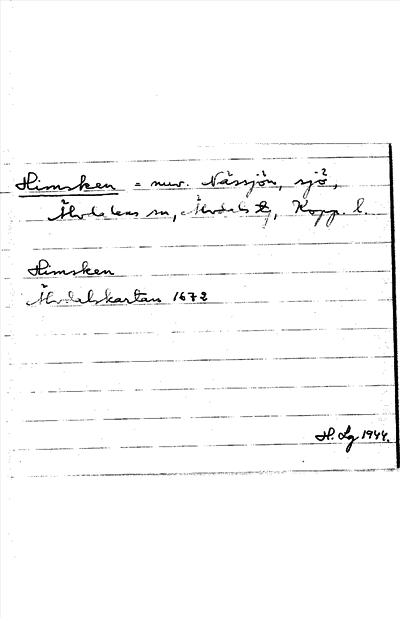 Himsken = nuv. Nässjön, sjö,
Älvdalens sn, Älvdals tg, Kopp. l.
Himsken
Älvdalskartan 1672
H. Lg 1944.